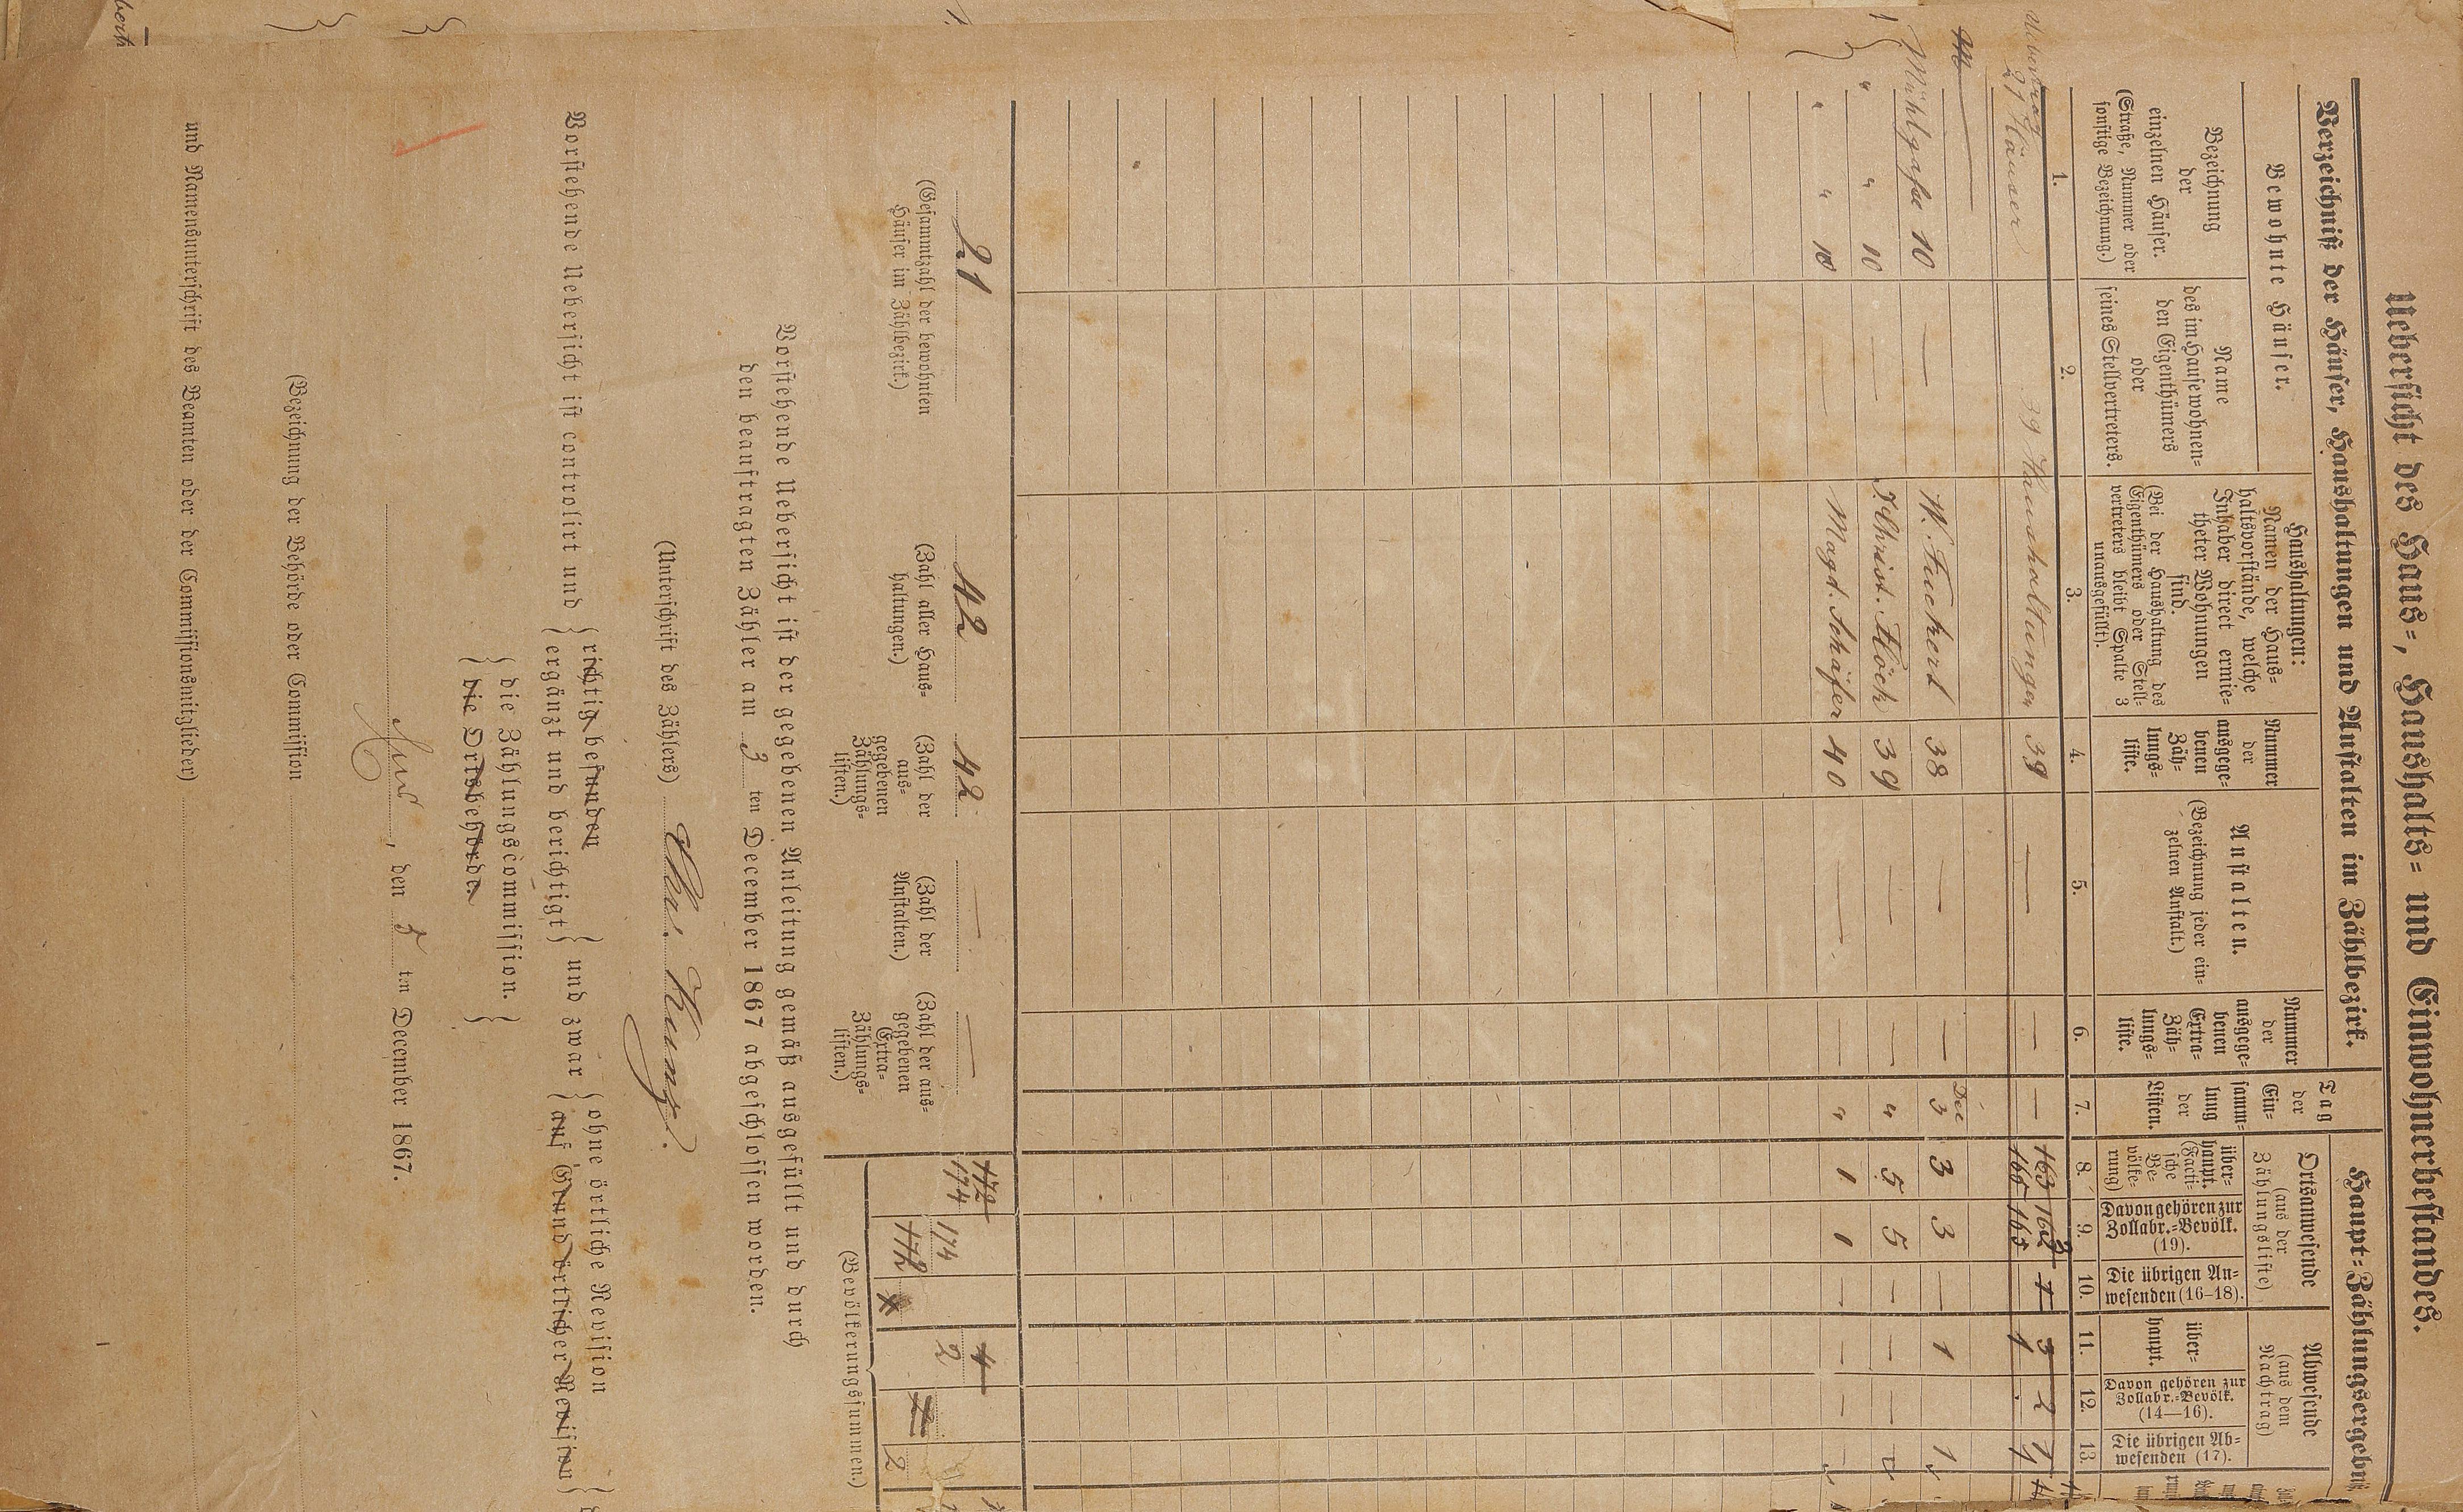 Uebersicht des Haus-, Haushalts- und Einwohnerbestandes.
Verzeichniß der Häuser, Haushaltungen und Anstalten im Zählbezirk.
Haupt-Zählungsergebniß
Bewohnte Häuser.
Bezeichnung
der
einzelnen Häuser.
(Straße, Nummer oder
sonstige Bezeichnung.)
Name
des im Hause wohnen-
den Eigenthümers
oder
seines Stellvertreters.
Haushaltungen:
Namen der Haus-
haltsvorstände, welche
Inhaber direct ermie-
theter Wohnungen
sind.
(Bei der Haushaltung des
Eigenthümers oder Stell-
vertreters bleibt Spalte 3
unausgefüllt).
Nummer
der
ausgege-
benen
Zäh-
lungs-
liste.
Anstalten.
(Bezeichnung jeder ein-
zelnen Anstalt.)
Nummer
der
ausgege-
benen
Extra-
Zäh-
lungs-
liste.
Tag
der
Ein-
samm-
lung
der
Listen.
Ortsanwesende
(aus der
Zählungsliste)
über-
haupt.
(Facti-
sche
Be-
völke-
rung)
Davon gehören zur
Zollabr.-Bevölk.
(19).
Die übrigen An-
wesenden (16–18).
Abwesende
(aus dem
Nachtrag)
über-
haupt.
Davon gehören zur
Zollabr.-Bevölk.
(14—16).
Die übrigen Ab-
wesenden (17).
1. 2. 3. 4. 5. 6. 7. 8. 9. 10. 11. 12. 13.
21 Häuser 39 Haushaltungen 39 — — — 163 162 1 3 2
165 165 1
Mühlgasse 10 — W. Fuckerd 38 — — Dec 3 3 3 — 1 1
" " 10 — J. Christ. Höck 39 — — " 5 5 — — —
" " 10 — Magd. Schäfer 40 — — " 1 1 — — — —
21 42 42 — — 172 174 4
174 172 2 2
(Gesammtzahl der bewohnten
Häuser im Zählbezirk.)
(Zahl aller Haus-
haltungen.)
(Zahl der
aus-
gegebenen
Zählungs-
listen.)
(Zahl der
Anstalten.)
(Zahl der aus-
gegebenen
Extra-
Zählungs-
listen.)
(Bevölkerungssummen.)
Vorstehende Uebersicht ist der gegebenen Anleitung gemäß ausgefüllt und durch
den beauftragten Zähler am 3 ten December 1867 abgeschlossen worden.
(Unterschrift des Zählers)
Vorstehende Uebersicht ist controlirt und { richtig befunden
ergänzt und berichtigt } und zwar { ohne örtliche Revision
auf Grund örtlicher Revision }
{ die Zählungscommission. }
{ die Ortsbehörde. }
, den 5 ten December 1867.
(Bezeichnung der Behörde oder Commission
und Namensunterschrift des Beamten oder der Commissionsmitglieder)